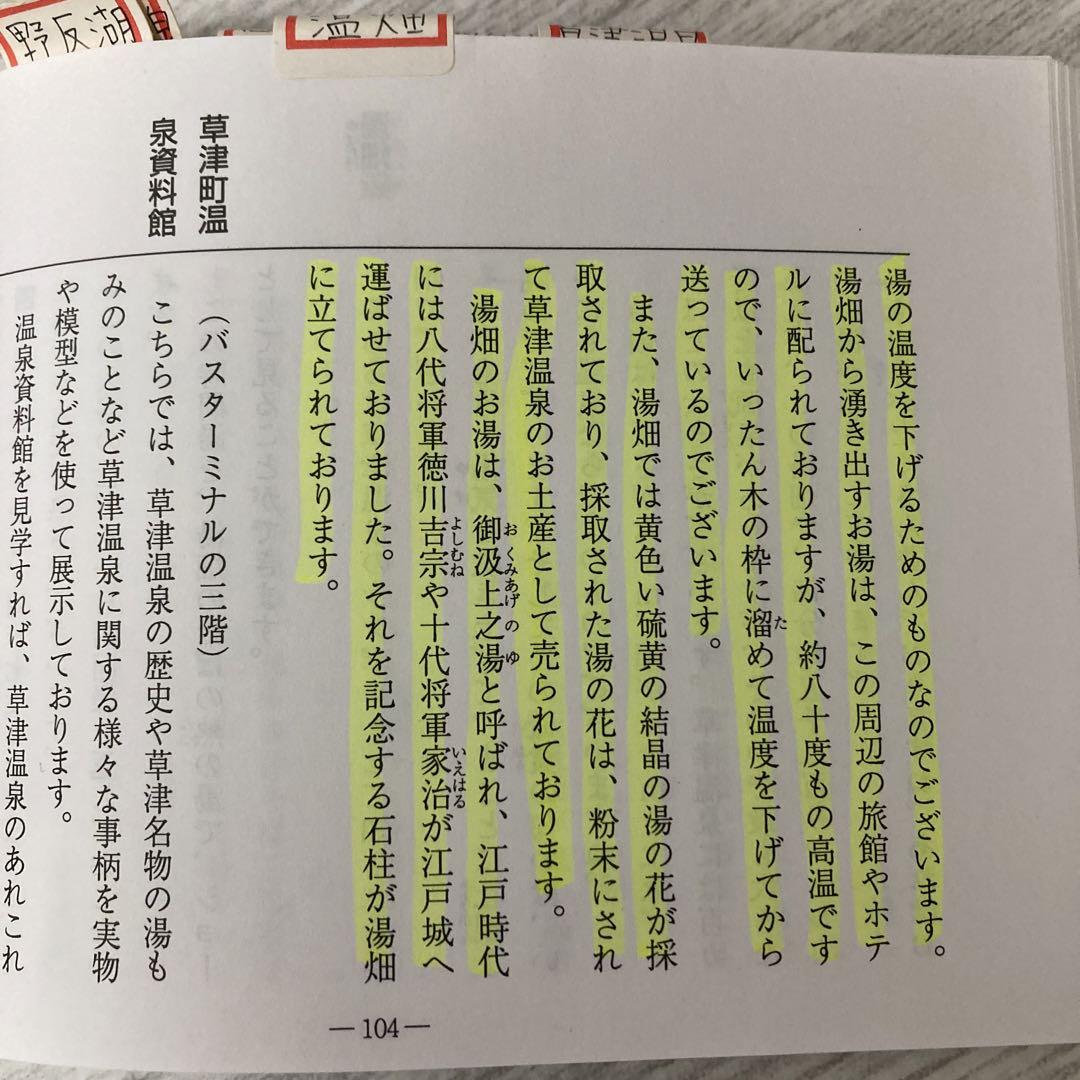 野反湖
湯の温度を下げるためのものなのでございます。
湯畑から湧き出すお湯は、この周辺の旅館やホテ
ルに配られておりますが、約八十度もの高温です
ので、いったん木の枠に溜めて温度を下げてから
た
送っているのでございます。
また、湯畑では黄色い硫黄の結晶の湯の花が採
取されており、採取された湯の花は、粉末にされ
て草津温泉のお土産として売られております。
湯畑のお湯は、御汲上之湯と呼ばれ、江戸時代
おくみあげのゆ
には八代将軍徳川吉宗や十代将軍家治が江戸城へ
よしむね いえはる
運ばせておりました。それを記念する石柱が湯畑
に立てられております。
草津町温
泉資料館
(バスターミナルの三階)
こちらでは、草津温泉の歴史や草津名物の湯も
みのことなど草津温泉に関する様々な事柄を実物
や模型などを使って展示しております。
温泉資料館を見学すれば、草津温泉のあれこれ
—104—